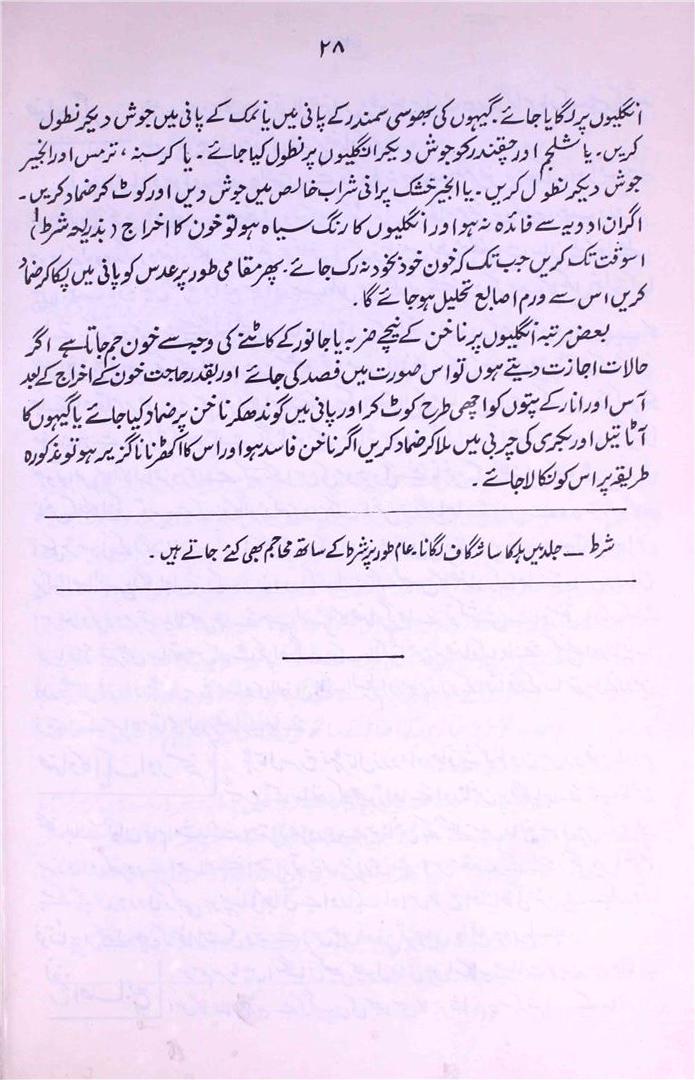 ۲۸
انگلیوں پر لگایا جائے۔ گیہوں کی بھوسی سمندر کے پانی میں یا نمک کے پانی میں جوش دیکر نطول
کریں۔ یا شلجم اور چقندر کو جوش دیکر انگلیوں پر نطول کیا جائے۔ یا کرسنہ، ترمس اور انجیر
جوش دیکر نطول کریں۔ یا انجیر خشک پرانی شراب خالص میں جوش دیں اور کوٹ کر ضماد کریں۔
اگر ان ادویہ سے فائدہ نہ ہو اور انگلیوں کا رنگ سیاہ ہو تو خون کا اخراج (بذریعہ شرط۱)
اسوقت تک کریں جب تک کہ خون خود بخود نہ رک جائے۔ پھر مقامی طور پر عدس کو پانی میں پکا کر ضماد
کریں اس سے ورم اصابع تحلیل ہو جائے گا۔
بعض مرتبہ انگلیوں پر ناخن کے نیچے ضربہ یا جانور کے کاٹنے کی وجہ سے خون جم جاتا ہے اگر
حالات اجازت دیتے ہوں تو اس صورت میں فصد کی جائے اور بقدر حاجت خون کے اخراج کے بعد
آس اور انار کے پتوں کو اچھی طرح کوٹ کر اور پانی میں گوندھکر ناخن پر ضماد کیا جائے یا گیہوں کا
آٹا تیل اور بکری کی چربی میں ملا کر ضماد کریں اگر ناخن فاسد ہو اور اس کا اکھڑنا ناگزیر ہو تو مذکورہ
طریقہ پر اس کو نکالا جائے۔
شرط – جلد میں ہلکا سا شگاف لگانا۔ عام طور پر شرط کے ساتھ محاجم بھی کئے جاتے ہیں۔